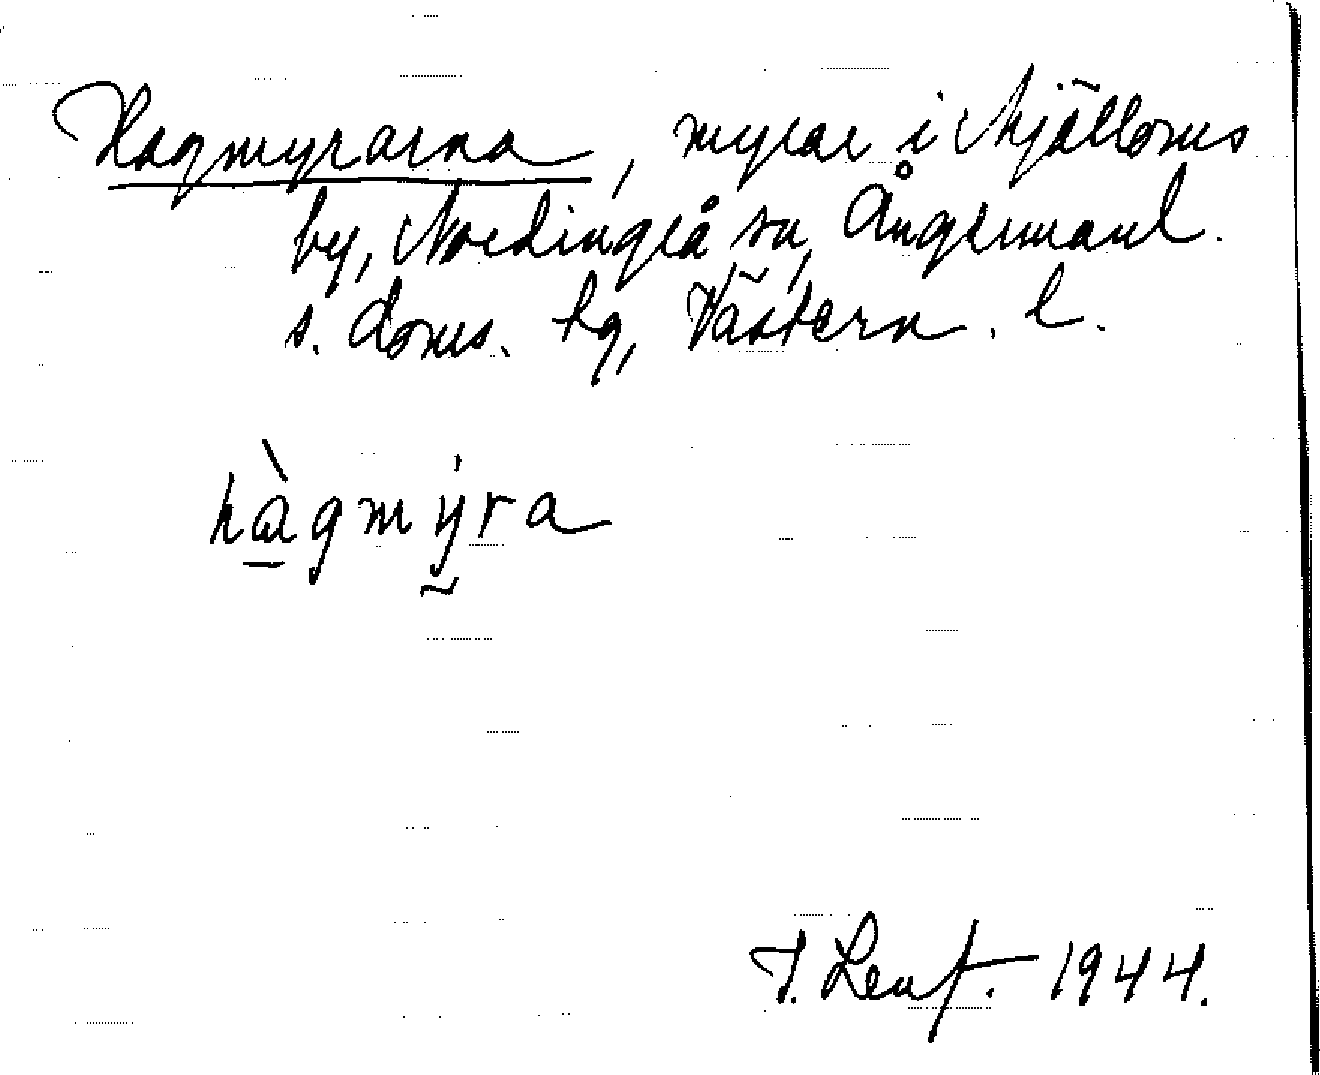 Hagmyrarna, myrar i Mjälloms
by, Nordingrå sn, Ångermanl.
s. doms. hg, Västern. l.
hàgmyra
T. Lenf. 1944.